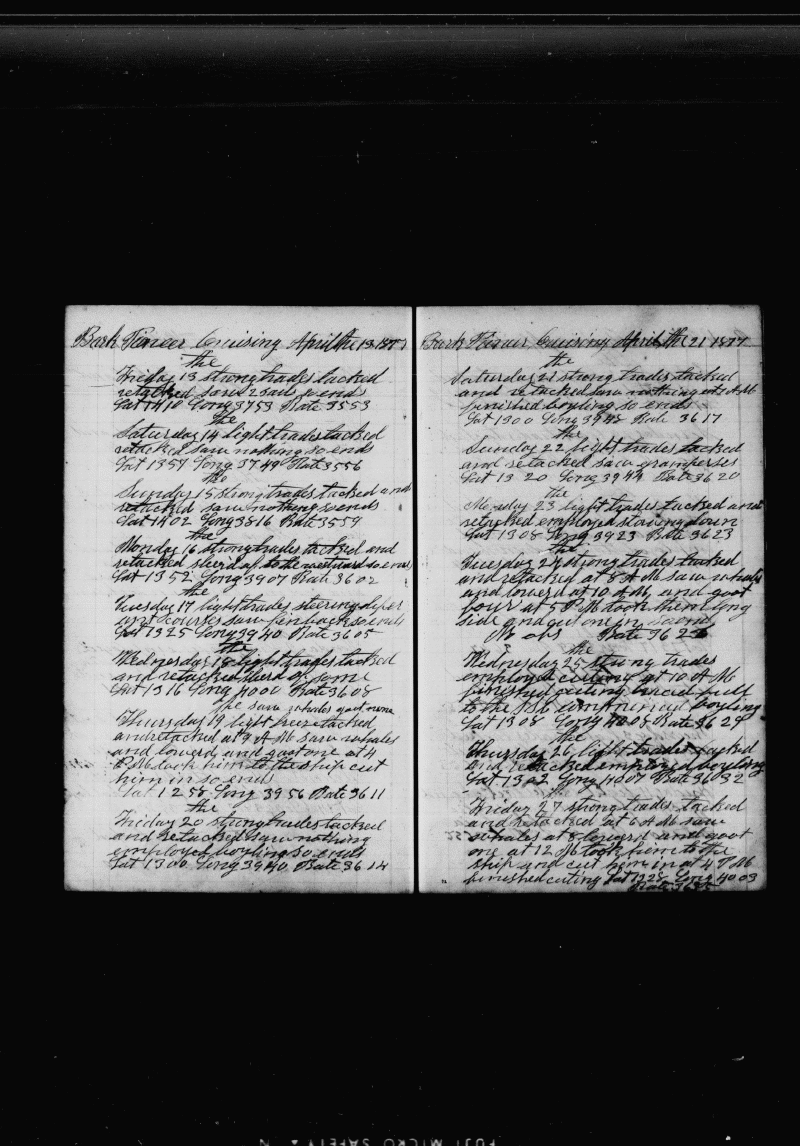 Bark Pioneer Cruising April the 13 1877
the
Friday 13 strong trades tacked
retacked saw 2 sail so ends
Lat 1410 Long 3753 Rate 3553
the
Saturday 14 light trades tacked
retacked saw nothing so ends
Lat 1351 Long 3749 Rate 3556
the
Sunday 15 strong trades tacked and
retacked saw nothing so ends
Lat 1402 Long 3816 Rate 3559
the
Monday 16 strong trades tacked and
retacked steerd of to the westward so ends
Lat 1352 Long 3907 Rate 3602
the
Tuesday 17 light trades steering
courses saw finback so ends
Lat 1325 Long 3940 Rate 3605
the
Wednesday 18 light trades tacked
and retacked steerd of some
Lat 1316 Long 4000 Rate 3608
the saw whales goot one
Thursday 19 light breeze tacked
and retacked at 9 A M saw whales
and lowerd and goot one at 4
P M took him to the ship cut
him in so ends
Lat 1258 Long 3956 Rate 3611
the
Friday 20 strong trades tacked
and retacked saw nothing
employed boyling so ends
Lat 1300 Long 3940 Rate 3614
Bark Pioneer Cruising April the 21 1877
the
Saturday 21 strong trades tacked
and retacked saw nothing at 1 A M
finished boyling so ends
Lat 1300 Long 3948 Rate 3617
the
Sunday 22 light trades tacked
and retacked saw gramperses
Lat 1320 Long 3944 Rate 3620
the
Monday 23 light trades tacked and
retacked employed stowing down
Lat 1308 Long 3923 Rate 3623
the
Tuesday 24 strong trades tacked
and retacked at 8 A M saw whales
and lowerd at 10 A M and goot
four at 5 P M took them long
side and cut one in so ends
No obs Rate 362
the
Wednesday 25 strong trades
employed cutting at 10 A M
finished cutting
to the commenced boyling
Lat 1308 Long 4005 Rate 3629
the
Thursday 26 light trades tacked
and retacked employed boyling
Lat 1342 Long 4007 Rate 3632
Friday 27 strong trades tacked
and retacked at 6 A M saw
whales at 8 lowerd and goot
one at 12 M took him to the
ship and cut him in at 4 P M
finished cutting Lat 1328 Long 4003
Rate 3635
FUJI MICRO SAFETY